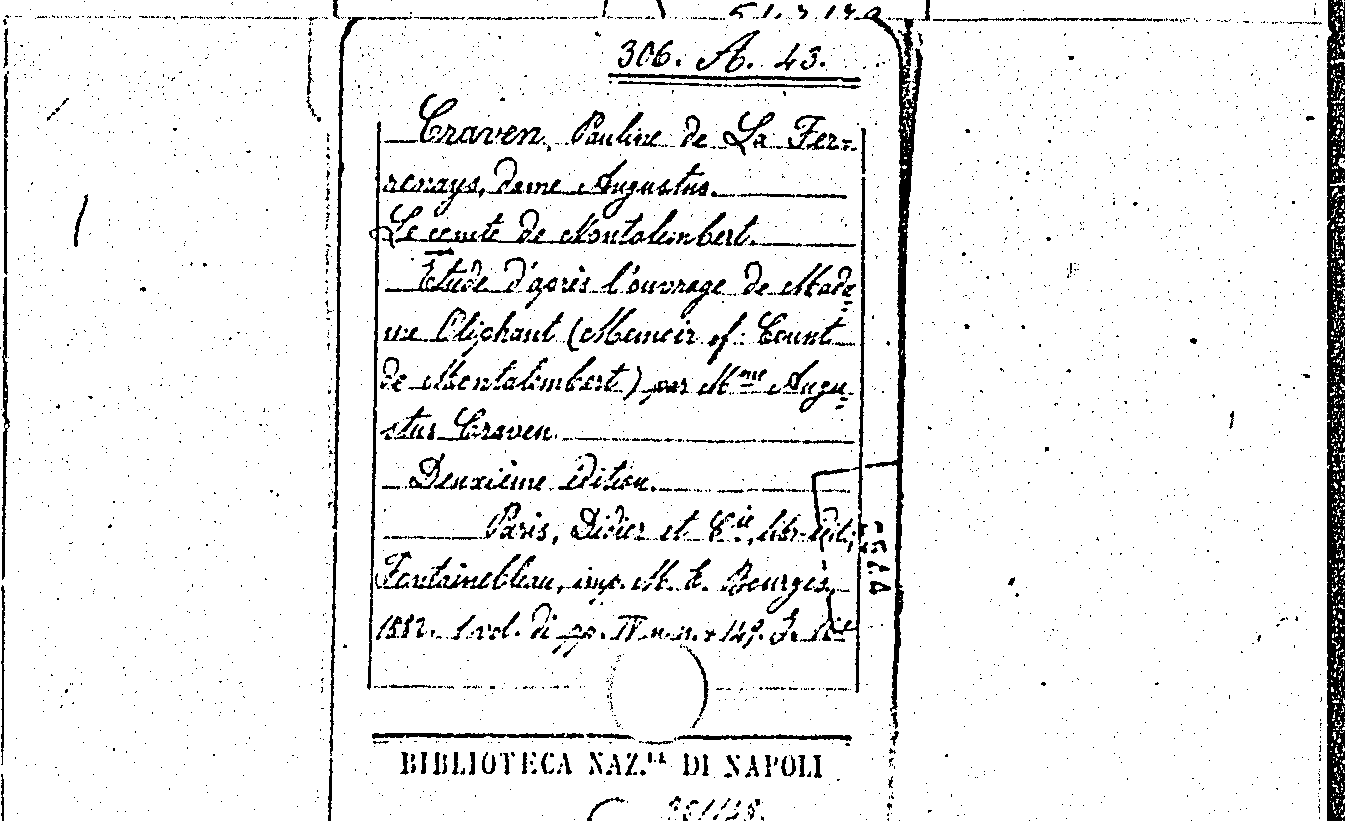 306. A. 43.
Craven, Pauline de La Fer=
renays, dame Augustus.
Le comte de Montalembert.
Étude d'après l'ouvrage de Mada
me Oliphant (Memoir of Count
de Montalembert) par Mme Augu=
stus Craven.
Deuxième édition.
Paris, Didier et Cie, libr-édit;
Fontainebleau, imp. M. E. Bourges,
1882. 1 vol. di pp. IV n.n. + 149.
BIBLIOTECA NAZ.LE DI NAPOLI